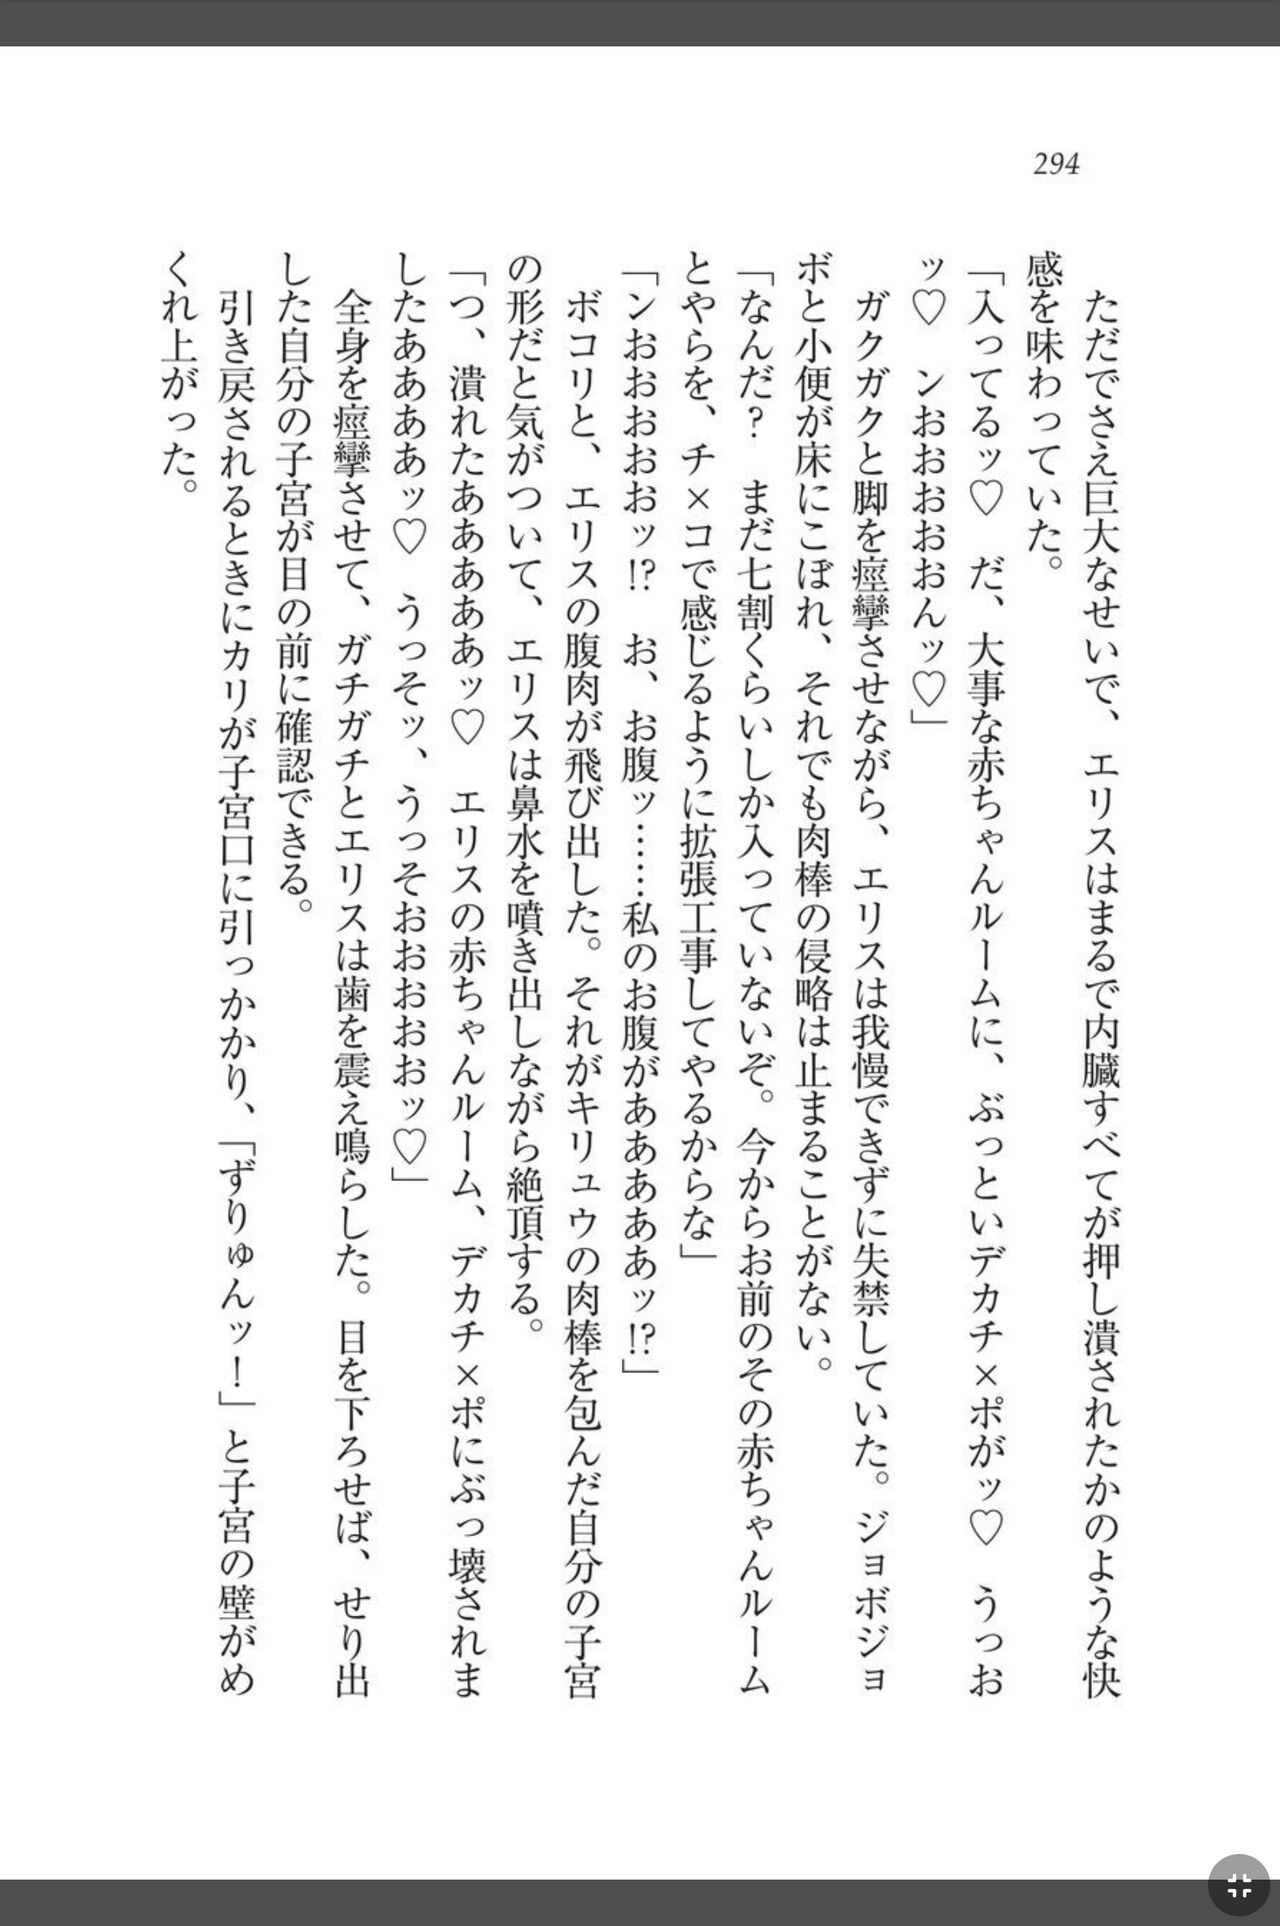 294
ただでさえ巨大なせいで、エリスはまるで内臓すべてが押し潰されたかのような快
感を味わっていた。
「入ってるッ♡　だ、大事な赤ちゃんルームに、ぶっといデカチ×ポがッ♡　うっお
ッ♡　ンおおおおおんッ♡」
ガクガクと脚を痙攣させながら、エリスは我慢できずに失禁していた。ジョボジョ
ボと小便が床にこぼれ、それでも肉棒の侵略は止まることがない。
「なんだ？　まだ七割くらいしか入っていないぞ。今からお前のその赤ちゃんルーム
とやらを、チ×コで感じるように拡張工事してやるからな」
「ンおおおおおッ!?　お、お腹ッ……私のお腹がああああああッ!?」
ボコリと、エリスの腹肉が飛び出した。それがキリュウの肉棒を包んだ自分の子宮
の形だと気がついて、エリスは鼻水を噴き出しながら絶頂する。
「つ、潰れたあああああッ♡　エリスの赤ちゃんルーム、デカチ×ポにぶっ壊されま
したああああッ♡　うっそッ、うっそおおおおおッ♡」
全身を痙攣させて、ガチガチとエリスは歯を震え鳴らした。目を下ろせば、せり出
した自分の子宮が目の前に確認できる。
引き戻されるときにカリが子宮口に引っかかり、「ずりゅんッ！」と子宮の壁がめ
くれ上がった。